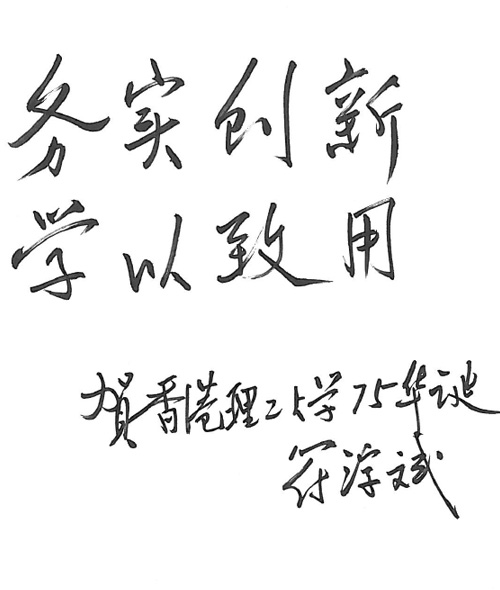 务实创新
学以致用
賀香港理工大学75华诞
符 斌